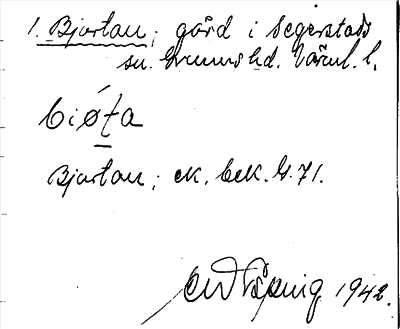 1. Bjortan; gård i Segerstads
sn. Grums hd. Värml. l.
biøta
Bjortan; ek. bek. G. 71.
1942.